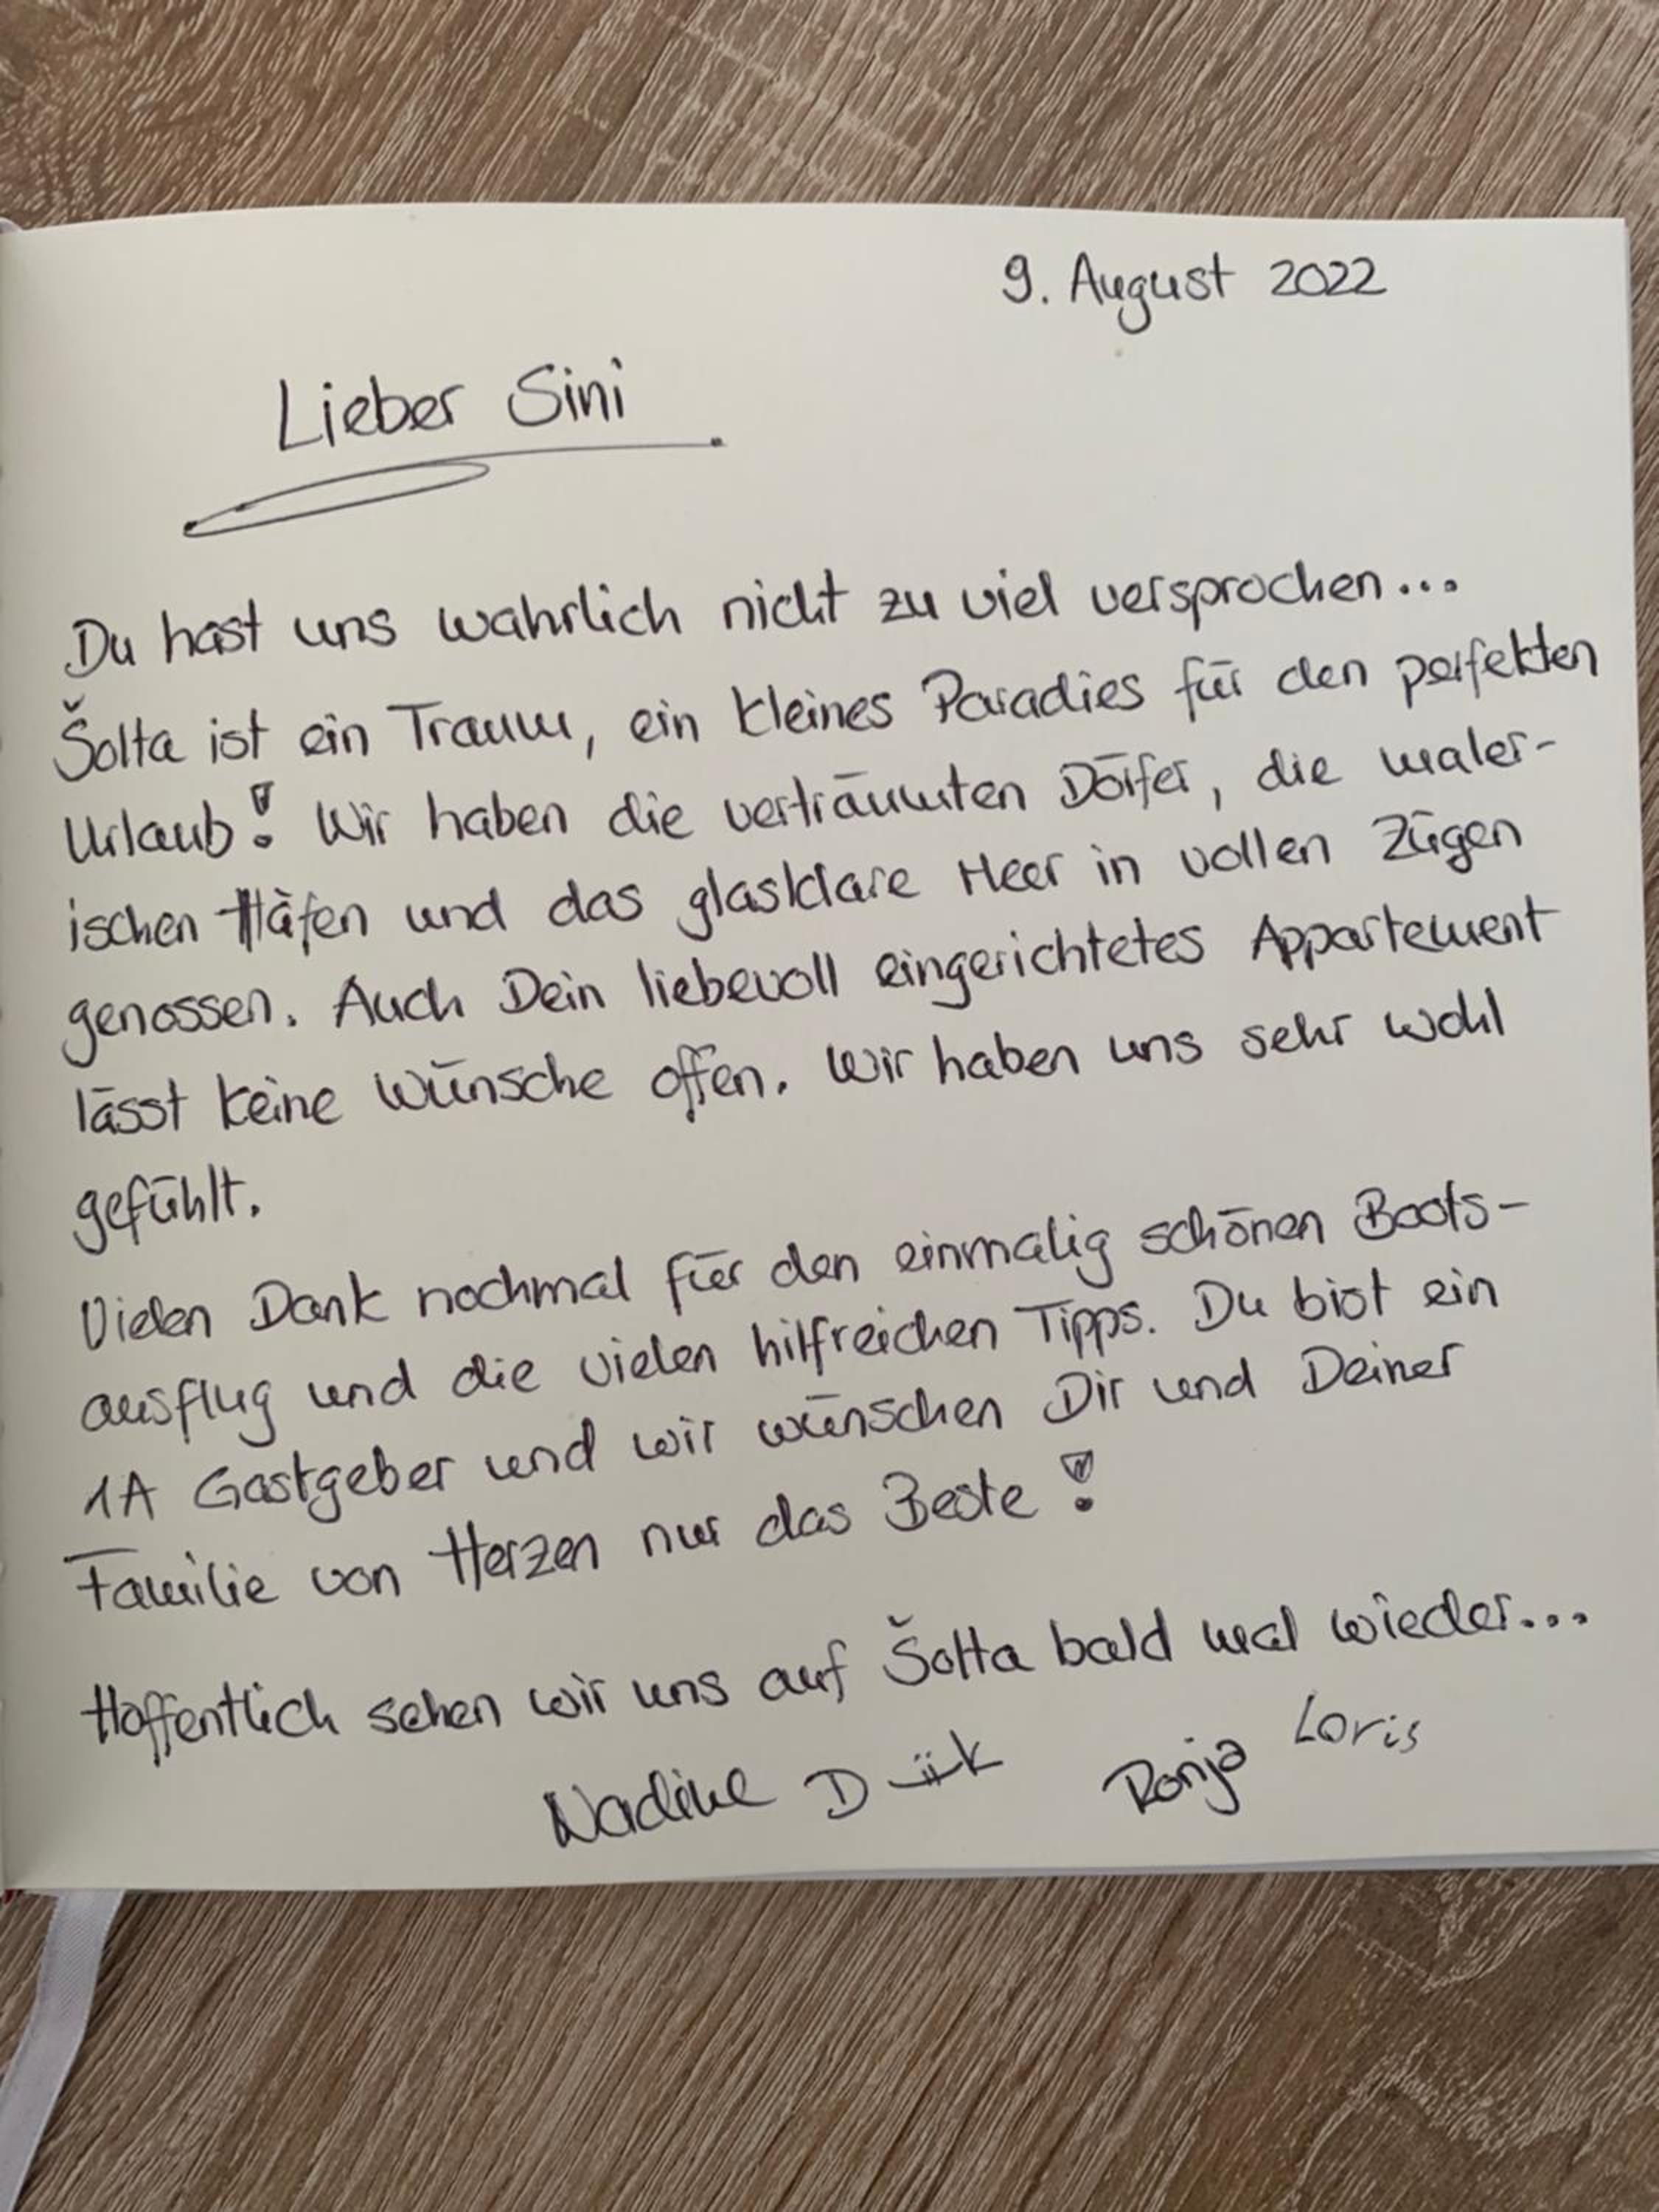 9. August 2022
Lieber Sini
Du hast uns wahrlich nicht zu viel versprochen...
Šolta ist ein Traum, ein kleines Paradies für den perfekten
Urlaub! Wir haben die verträumten Dörfer, die maler-
ischen Häfen und das glasklare Meer in vollen Zügen
genossen. Auch Dein liebevoll eingerichtetes Appartement
lässt keine Wünsche offen. Wir haben uns sehr wohl
gefühlt.
Vielen Dank nochmal für den einmalig schönen Boots-
ausflug und die vielen hilfreichen Tipps. Du bist ein
1A Gastgeber und wir wünschen Dir und Deiner
Familie von Herzen nur das Beste!
Hoffentlich sehen wir uns auf Šolta bald mal wieder...
Nadine Ronja Loris